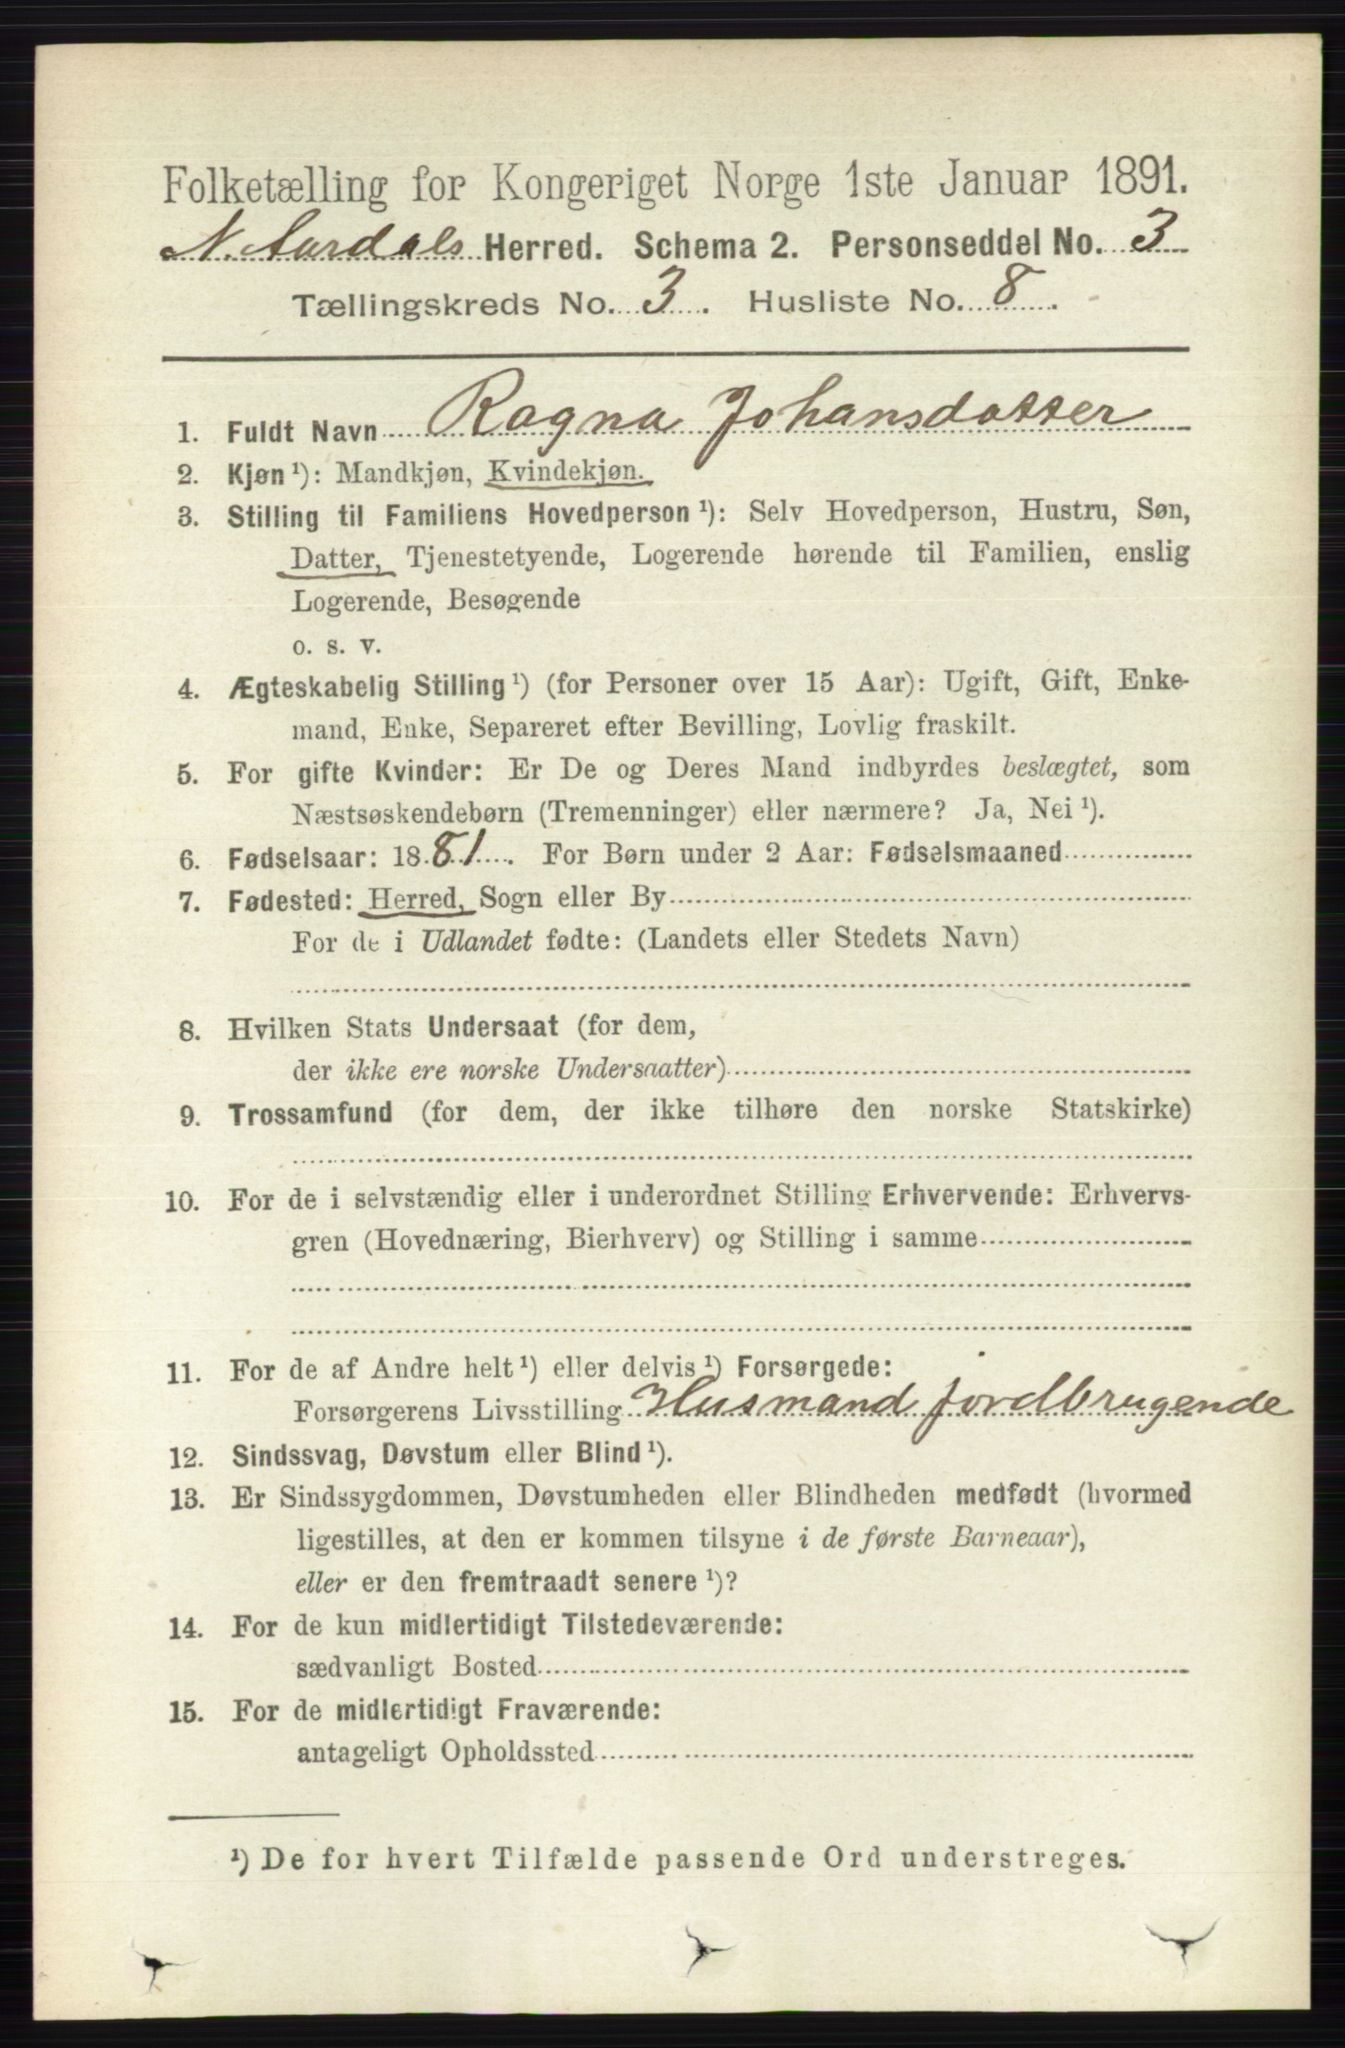 Folketælling for Kongeriget Norge 1ste Januar 1891.
N. Aurdals Herred. Schema 2. Personseddel No. 3
Tællingskreds No. 3. Husliste No. 8.
1. Fuldt Navn Ragna Johansdatter
2. Kjøn ¹): Mandkjøn, Kvindekjøn.
3. Stilling til Familiens Hovedperson ¹): Selv Hovedperson, Hustru, Søn,
Datter, Tjenestetyende, Logerende hørende til Familien, enslig
Logerende, Besøgende
o. s. v.
4. Ægteskabelig Stilling ¹) (for Personer over 15 Aar): Ugift, Gift, Enke-
mand, Enke, Separeret efter Bevilling, Lovlig fraskilt.
5. For gifte Kvinder: Er De og Deres Mand indbyrdes beslægtet, som
Næstsøskendebørn (Tremenninger) eller nærmere? Ja, Nei ¹).
6. Fødselsaar: 1881. For Børn under 2 Aar: Fødselsmaaned
7. Fødested: Herred, Sogn eller By
For de i Udlandet fødte: (Landets eller Stedets Navn)
8. Hvilken Stats Undersaat (for dem,
der ikke ere norske Undersaatter)
9. Trossamfund (for dem, der ikke tilhøre den norske Statskirke)
10. For de i selvstændig eller i underordnet Stilling Erhvervende: Erhvervs-
gren (Hovednæring, Bierhverv) og Stilling i samme
11. For de af Andre helt ¹) eller delvis ¹) Forsørgede:
Forsørgerens Livsstilling Husmand jordbrugende
12. Sindssvag, Døvstum eller Blind ¹).
13. Er Sindssygdommen, Døvstumheden eller Blindheden medfødt (hvormed
ligestilles, at den er kommen tilsyne i de første Barneaar),
eller er den fremtraadt senere ¹)?
14. For de kun midlertidigt Tilstedeværende:
sædvanligt Bosted
15. For de midlertidigt Fraværende:
antageligt Opholdssted
¹) De for hvert Tilfælde passende Ord understreges.